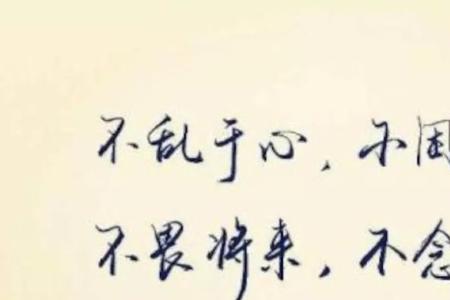 不乱于心，不困
不畏将来，不念